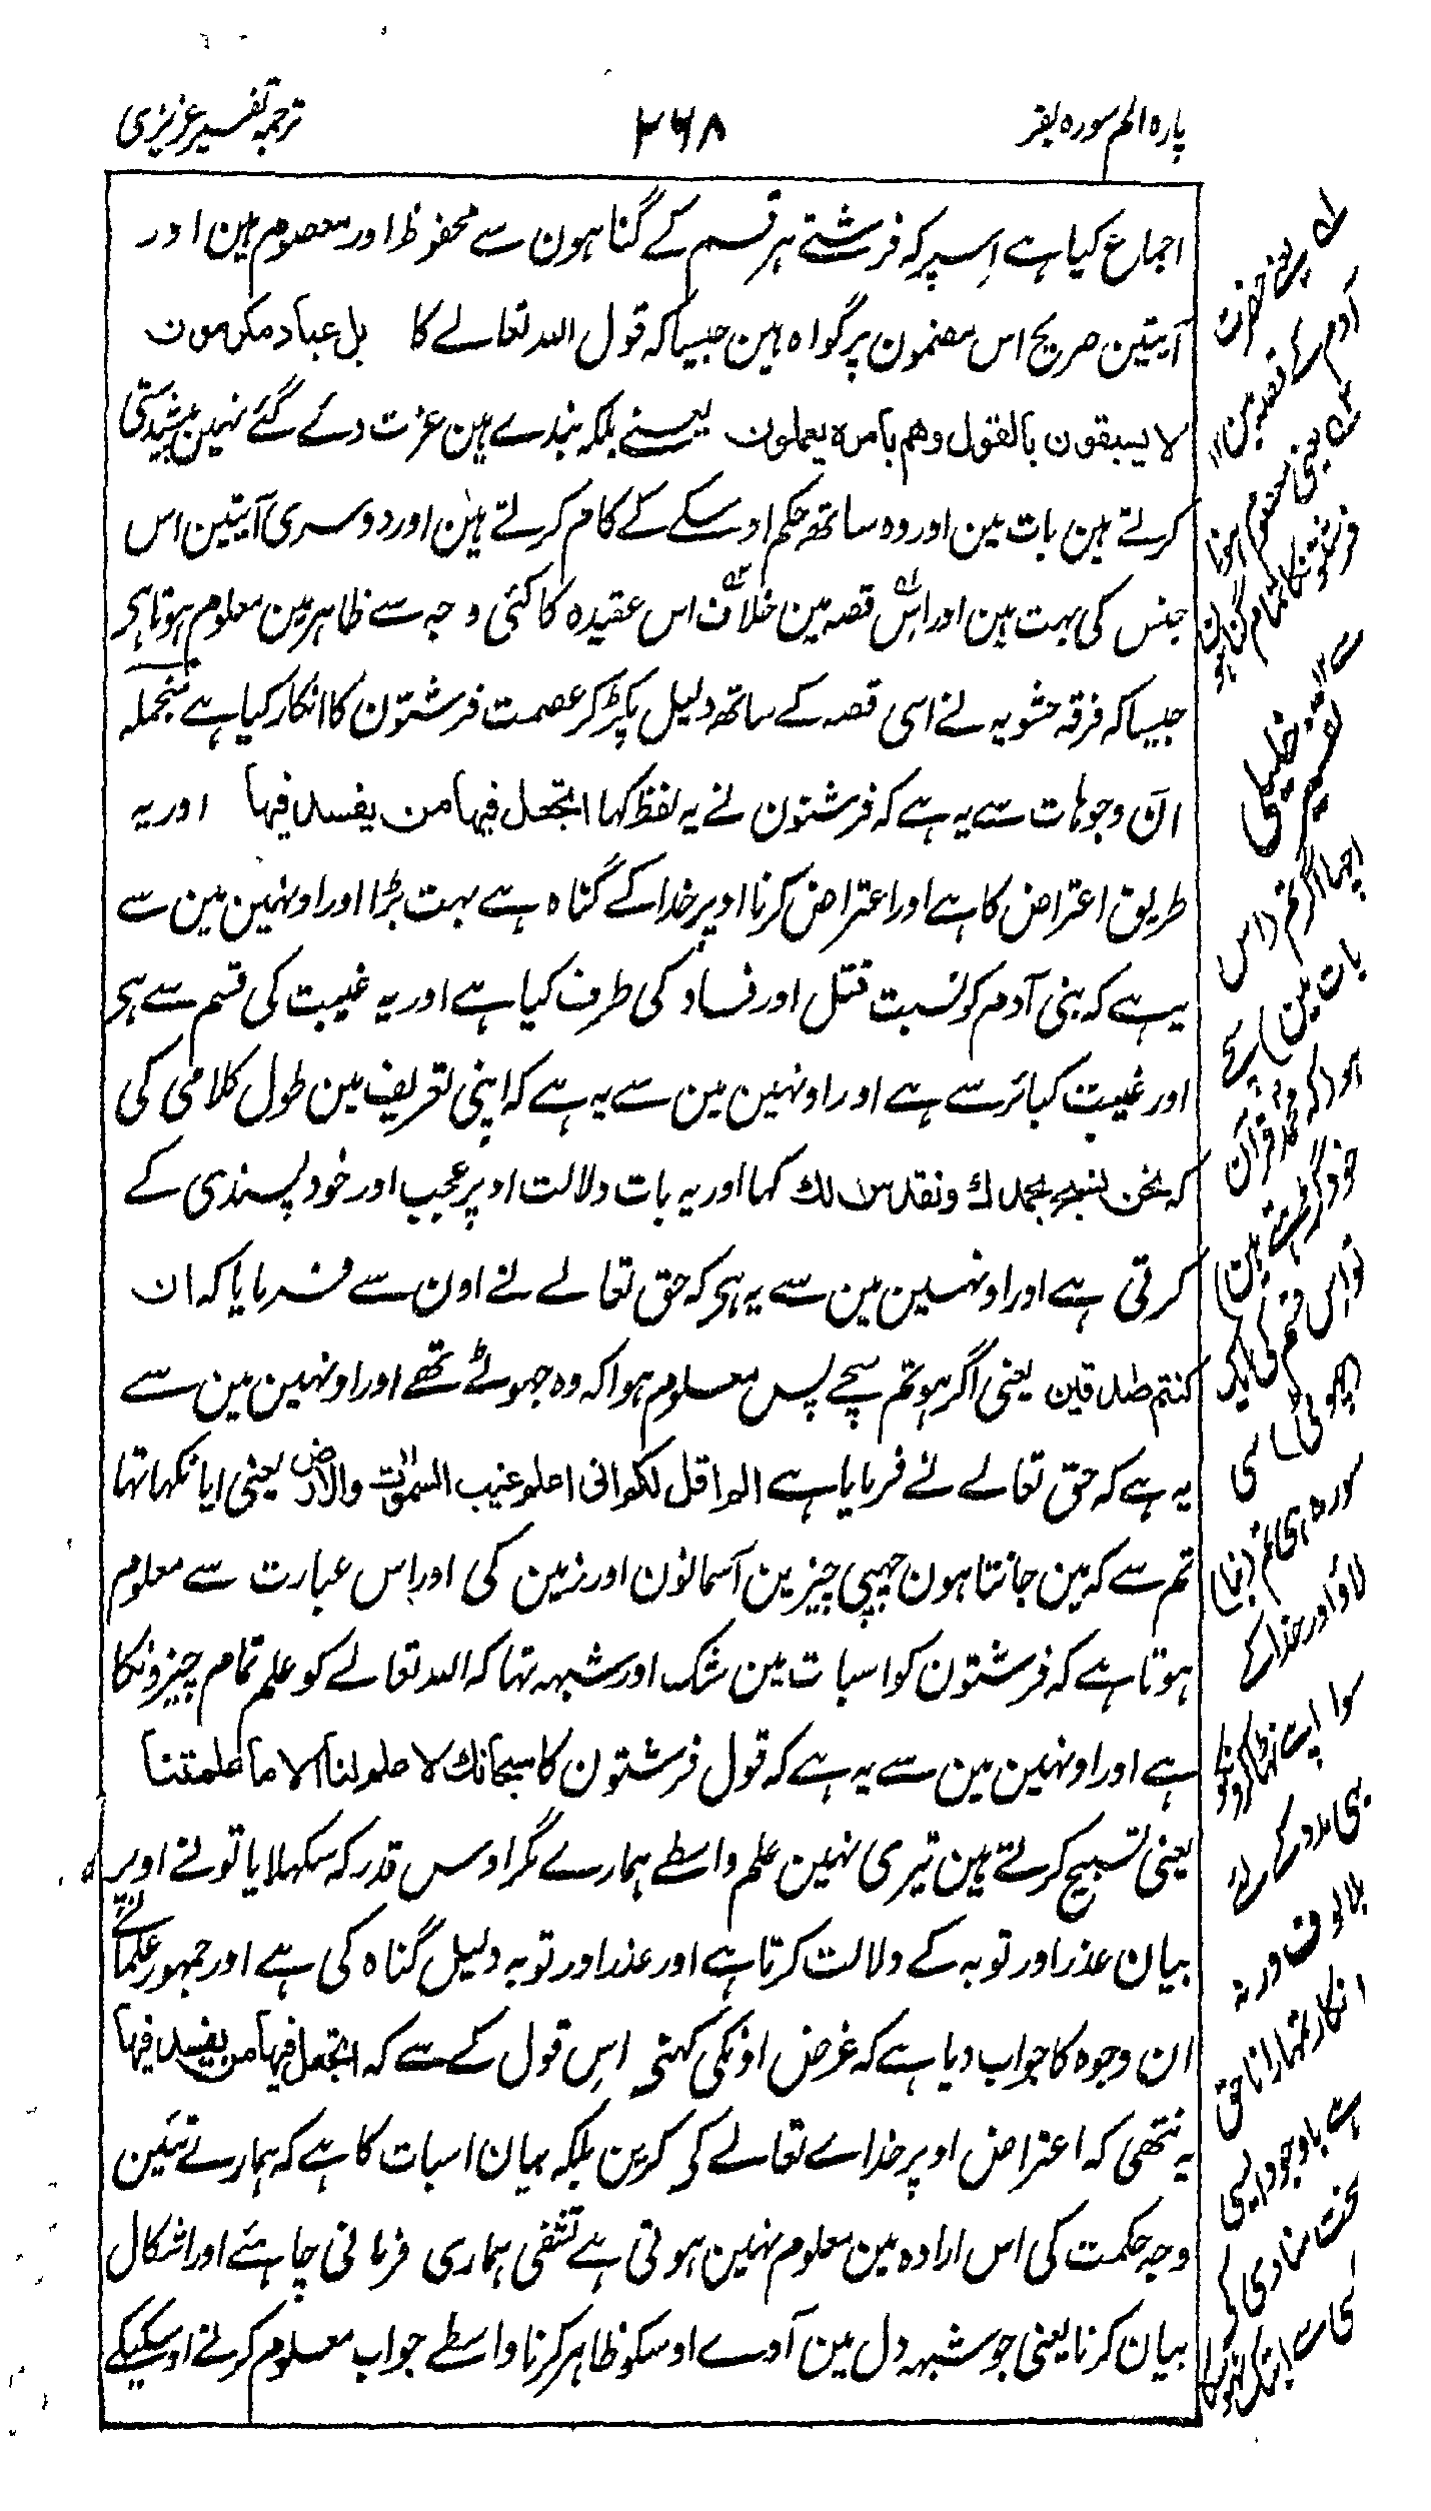 پارہ الم سورہ بقر
۲۶۸
ترجمہ تفسیر عزیزی
اجماع کیا ہے اِسپر کہ فرشتے ہر قسم کے گناہون سے محفوظ اور معصوم ہین اور
آیتین صریح اس مضمون پر گواہ ہین جیسا کہ قول اللہ تعالے کا بل عباد مکرمون
لا یسبقون بالقول وھم بامرہ یعملون یعنے بلکہ بندے ہین عزت دئے گئے نہین پیشدستی
کرتے ہین بات مین اور وہ ساتھ حکم اوسکے کے کام کرتے ہین اور دوسری آیتین اس
جنس کی بہت ہین اور اس قصہ مین خلاف اس عقیدہ کا کئی وجہ سے ظاہر مین معلوم ہوتا ہی
جیسا کہ فرقہ حشویہ نے اسی قصہ کے ساتھ دلیل پکڑ کر عصمت فرشتون کا انکار کیا ہے منجملہ
ان وجوہات سے یہ ہے کہ فرشتون نے یہ لفظ کہا اتجعل فیہا من یفسد فیہا اور یہ
طریق اعتراض کا ہے اور اعتراض کرنا اوپر خدا کے گناہ ہے بہت بڑا اور اونہین مین سے
یہ ہے کہ بنی آدم کو نسبت قتل اور فساد کی طرف کیا ہے اور یہ غیبت کی قسم سے ہی
اور غیبت کبائر سے ہے اور اونہین مین سے یہ ہے کہ اپنی تعریف مین طول کلامی کی
کہ نحن نسبح بحمدك ونقدس لك کہا اور یہ بات دلالت اوپر عجب اور خود پسندی کے
کرتی ہے اور اونہین مین سے یہ ہی کہ حق تعالے نے اون سے فرمایا کہ ان
کنتم صدقین یعنی اگر ہو تم سچے پس معلوم ہوا کہ وہ جھوٹے تھے اور اونہین مین سے
یہ ہے کہ حق تعالے نے فرمایا ہے الم اقل لکم انی اعلم غیب السموات والارض یعنی ایا نکہا تہا
تم سے کہ مین جانتا ہون چھپی چیزین آسمانون اور زمین کی اور اِس عبارت سے معلوم
ہوتا ہے کہ فرشتون کو اسبات مین شک اور شبہہ تہا کہ اللہ تعالے کو علم تمام چیزونکا
ہے اور اونہین مین سے یہ ہے کہ قول فرشتون کا سبحانك لا علم لنا الا ما علمتنا
یعنی تسبیح کرتے ہین تیری نہین علم واسطے ہمارے مگر اوس قدر کہ سکہلایا تو نے اوپر
بیان عذر اور توبہ کے دلالت کرتا ہے اور عذر اور توبہ دلیل گناہ کی ہے اور جمہور علمائے
ان وجوہ کا جواب دیا ہے کہ غرض اونکی کہنے اِس قول کے سے کہ اتجعل فیہا من یفسد فیہا
یہ نتھی کہ اعتراض اوپر خداے تعالے کے کرین بلکہ بیان اسبات کا ہے کہ ہمارے تئین
وجہ حکمت کی اس ارادہ مین معلوم نہین ہوتی ہے تشفی ہماری فرمانی چاہئے اور اشکال
بیان کرنا یعنی جو شبہہ دل مین آوے اوسکو ظاہر کرنا واسطے جواب معلوم کرنے اوسکیکے
یعنے حضرت
آدم کے قصہ مین
یعنی معصوم ہونا
فرشتونکا تمام گناہون
سے
تفسیر خلیلی
اچھا اگر تم (اس
بات مین) سچے
ہو (کہ محمد قرآن
خود گڑھتے ہین)
تو اس قسم کی ایک
چھوٹی سی
سورہ ہی تم (بنا)
لاؤ اور خدا کے
سوا اپنے
بہی مدد کے لئے
بلا لو ورنہ
انکار تمہارا ناحق
ہے باوجود ایسی